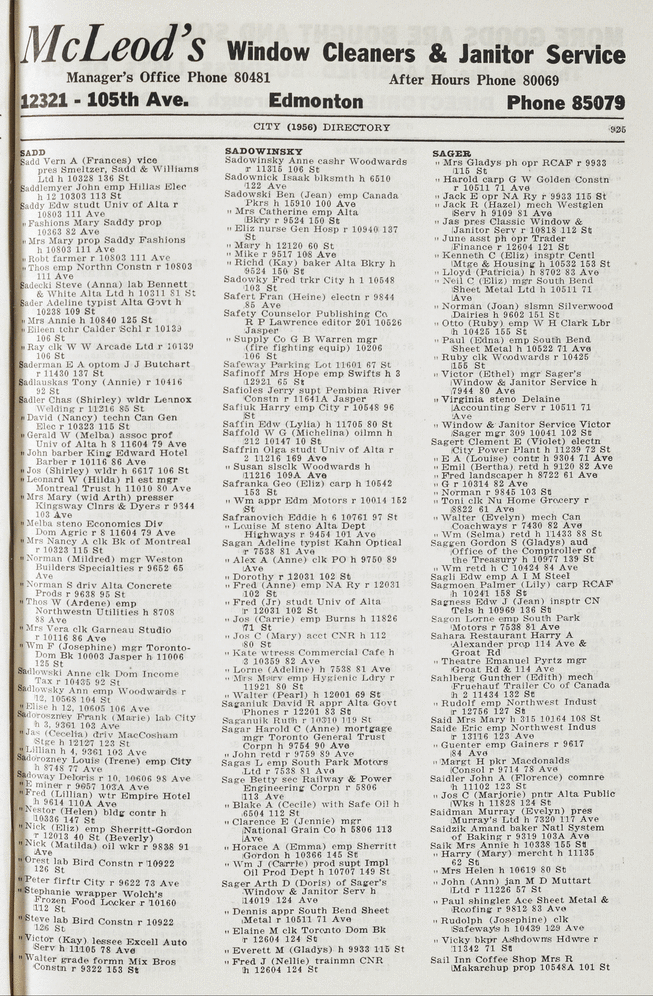 McLeod's Window Cleaners & Janitor Service
Manager's Office Phone 80481 After Hours Phone 80069
12321 - 105th Ave. Edmonton Phone 85079
CITY (1956) DIRECTORY 925
SADD
Sadd Vern A (Frances) vice
pres Smeltzer, Sadd & Williams
Ltd h 10328 136 St
Saddlemyer John emp Hilias Elec
h 12 10303 113 St
Saddy Edw studt Univ of Alta r
10803 111 Ave
" Fashions Mary Saddy prop
10363 82 Ave
" Mrs Mary prop Saddy Fashions
h 10803 111 Ave
" Robt farmer r 10803 111 Ave
" Thos emp Northn Constn r 10803
111 Ave
Sadecki Steve (Anna) lab Bennett
& White Alta Ltd h 10311 81 St
Sader Adeline typist Alta Govt h
10238 109 St
" Mrs Annie h 10840 125 St
" Eileen tchr Calder Schl r 10139
106 St
" Ray clk W W Arcade Ltd r 10139
106 St
Saderman E A optom J J Butchart
r 11430 137 St
Sadlauskas Tony (Annie) r 10416
92 St
Sadler Chas (Shirley) wldr Lennox
Welding r 11216 85 St
" David (Nancy) techn Can Gen
Elec r 10323 115 St
" Gerald W (Melba) assoc prof
Univ of Alta h 8 11604 79 Ave
" John barber King Edward Hotel
Barber r 10116 86 Ave
" Jos (Shirley) wldr h 6617 106 St
" Leonard W (Hilda) rl est mgr
Montreal Trust h 11010 80 Ave
" Mrs Mary (wid Arth) presser
Kingsway Clnrs & Dyers r 9344
103 Ave
" Melba steno Economics Div
Dom Agric r 8 11604 79 Ave
" Mrs Nancy A clk Bk of Montreal
r 10323 115 St
" Norman (Mildred) mgr Weston
Builders Specialties r 9652 65
Ave
" Norman S driv Alta Concrete
Prods r 9638 95 St
" Thos W (Ardene) emp
Northwestn Utilities h 8708
88 Ave
" Mrs Vera clk Garneau Studio
r 10116 86 Ave
" Wm F (Josephine) mgr Toronto-
Dom Bk 10003 Jasper h 11006
125 St
Sadlowski Anne clk Dom Income
Tax r 10435 92 St
Sadlowsky Ann emp Woodwards r
12, 10568 104 St
" Elise h 12, 10605 106 Ave
Sadoroszney Frank (Marie) lab City
h 3, 9361 103 Ave
" Jas (Cecelia) driv MacCosham
Stge h 12127 123 St
" Lillian h 4, 9361 103 Ave
Sadorozny Louis (Irene) emp City
h 8748 77 Ave
Sadoway Deloris r 10, 10606 98 Ave
" E miner r 9657 103A Ave
" Fred (Lillian) wtr Empire Hotel
h 9614 110A Ave
" Nestor (Helen) bldg contr h
10336 147 St
" Nick (Eliz) emp Sherritt-Gordon
r 12013 40 St (Beverly)
" Nick (Matilda) oil wkr r 9838 91
Ave
" Orest lab Bird Constn r 10922
126 St
" Peter firftr City r 9622 73 Ave
" Stephanie wrapper Wolch's
Frozen Food Locker r 10160
112 St
" Steve lab Bird Constn r 10922
126 St
" Victor (Kay) lessee Excell Auto
Serv h 11105 78 Ave
" Walter grade formn Mix Bros
Constn r 9322 153 St
SADOWINSKY
Sadowinsky Anne cashr Woodwards
r 11315 106 St
Sadownick Isaak blksmth h 6510
122 Ave
Sadowski Ben (Jean) emp Canada
Pkrs h 15910 100 Ave
" Mrs Catherine emp Alta
Bkry r 9524 150 St
" Eliz nurse Gen Hosp r 10940 137
St
" Mary h 12120 60 St
" Mike r 9517 108 Ave
" Richd (Kay) baker Alta Bkry h
9524 150 St
Sadowky Fred trkr City h 1 10548
103 St
Safert Fran (Heine) electn r 9844
85 Ave
Safety Counselor Publishing Co
R P Lawrence editor 201 10526
Jasper
" Supply Co G B Warren mgr
(fire fighting equip) 10206
106 St
Safeway Parking Lot 11601 67 St
Safinoff Mrs Hope emp Swifts h 3
12921 65 St
Safioles Jerry supt Pembina River
Constn r 11641A Jasper
Safiuk Harry emp City r 10548 96
St
Saffin Edw (Lylia) h 11705 80 St
Saffold W G (Michelina) oilmn h
212 10147 10 St
Saffrin Olga studt Univ of Alta r
2 11216 169 Ave
" Susan slsclk Woodwards h
11216 109A Ave
Safranka Geo (Eliz) carp h 10542
153 St
" Wm appr Edm Motors r 10014 152
St
Safranovich Eddie h 6 10761 97 St
" Louise M steno Alta Dept
Highways r 9454 101 Ave
Sagan Adeline typist Kahn Optical
r 7538 81 Ave
" Alex A (Anne) clk PO h 9750 89
Ave
" Dorothy r 12031 102 St
" Fred (Anne) emp NA Ry r 12031
102 St
" Fred (Jr) studt Univ of Alta
r 12031 102 St
" Jos (Carrie) emp Burns h 11826
71 St
" Jos C (Mary) acct CNR h 112
80 St
" Kate wtress Commercial Cafe h
3 10359 82 Ave
" Lorne (Adeline) h 7538 81 Ave
" Mrs Mary emp Hygienic Ldry r
11921 80 St
" Walter (Pearl) h 12001 69 St
Saganiuk David R appr Alta Govt
Phones r 12201 83 St
Saganuik Ruth r 10310 119 St
Sagar Harold C (Anne) mortgage
mgr Toronto General Trust
Corpn h 9754 90 Ave
" John retd r 9759 89 Ave
Sagas L emp South Park Motors
Ltd r 7538 81 Ave
Sage Betty sec Railway & Power
Engineering Corpn r 5806
113 Ave
" Blake A (Cecile) with Safe Oil h
6504 112 St
" Clarence E (Jennie) mgr
National Grain Co h 5806 113
Ave
" Horace A (Emma) emp Sherritt
Gordon h 10366 145 St
" Wm J (Carrie) prod supt Impl
Oil Prod Dept h 10707 149 St
Sager Arth D (Doris) of Sager's
Window & Janitor Serv h
14019 124 Ave
" Dennis appr South Bend Sheet
Metal r 10511 71 Ave
" Elaine M clk Toronto Dom Bk
r 12604 124 St
" Everett M (Gladys) h 9933 115 St
" Fred J (Nellie) trainmn CNR
h 12604 124 St
SAGER
" Mrs Gladys ph opr RCAF r 9933
115 St
" Harold carp G W Golden Constn
r 10511 71 Ave
" Jack E opr NA Ry r 9933 115 St
" Jack R (Hazel) mech Westglen
Serv h 9109 81 Ave
" Jas pres Classic Window &
Janitor Serv r 10818 112 St
" June asst ph opr Trader
Finance r 12604 121 St
" Kenneth C (Eliz) insptr Centl
Mtge & Housing h 10532 153 St
" Lloyd (Patricia) h 8702 83 Ave
" Neil C (Eliz) mgr South Bend
Sheet Metal Ltd h 10511 71
Ave
" Norman (Joan) slsmn Silverwood
Dairies h 9602 151 St
" Otto (Ruby) emp W H Clark Lbr
h 10425 155 St
" Paul (Edna) emp South Bend
Sheet Metal h 10522 71 Ave
" Ruby clk Woodwards r 10425
155 St
" Victor (Ethel) mgr Sager's
Window & Janitor Service h
7944 92 Ave
" Virginia steno Delaine
Accounting Serv r 10511 71
Ave
" Window & Janitor Service Victor
Sager mgr 309 10041 102 St
Sagert Clement E (Violet) electn
City Power Plant h 11239 72 St
" E A (Louise) contr h 9304 71 Ave
" Emil (Bertha) retd h 9120 82 Ave
" Fred landscaper h 8722 61 Ave
" G r 10314 82 Ave
" Norman r 9845 103 St
" Toni clk Nu Home Grocery r
8822 61 Ave
" Walter (Evelyn) mech Can
Coachways r 7430 82 Ave
" Wm (Selma) retd h 11433 88 St
Saggen Gordon S (Gladys) aud
Office of the Comptroller of
the Treasury h 10977 139 St
" Wm retd h C 10424 84 Ave
Sagli Edw emp A I M Steel
Sagmoen Palmer (Lily) carp RCAF
h 10241 158 St
Sagness Edw J (Jean) insptr CN
Tels h 10969 136 St
Sagon Lorne emp South Park
Motors r 7538 81 Ave
Sahara Restaurant Harry A
Alexander prop 114 Ave &
Groat Rd
" Theatre Emanuel Pyrtz mgr
Groat Rd & 114 Ave
Sahlberg Gunther (Edith) mech
Fruehauf Trailer Co of Canada
h 2 11434 132 St
" Rudolf emp Northwest Indust
r 12756 127 St
Said Mrs Mary h 315 10164 108 St
Saide Eric emp Northwest Indus
r 13116 123 Ave
" Guenter emp Gainers r 9617
84 Ave
" Margt H pkr Macdonalds
Consol r 9714 78 Ave
Saidler John A (Florence) comnre
h 11102 123 St
" Jos C (Marjorie) pntr Alta Public
Wks h 11828 124 St
Saidman Murray (Evelyn) pres
Murray's Ltd h 7320 117 Ave
Saidzik Amand baker Natl System
of Baking r 9319 103A Ave
Saik Mrs Annie h 10338 155 St
" Harry (Mary) mercht h 11135
62 St
" Mrs Helen h 10619 80 St
" John (Ann) jan M D Muttart
Ltd r 11226 57 St
" Paul shingler Ace Sheet Metal &
Roofing r 9812 83 Ave
" Rudolph (Josephine) clk
Safeways h 10439 129 Ave
" Vicky bkpr Ashdowns Hdwre r
11342 71 St
Sail Inn Coffee Shop Mrs R
Makarchup prop 10548A 101 St